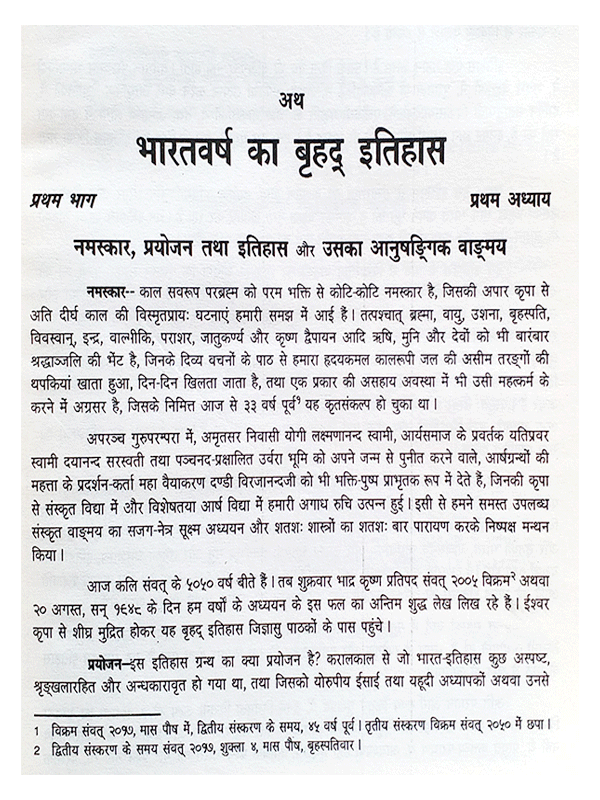 अथ
भारतवर्ष का बृहद् इतिहास
प्रथम भाग प्रथम अध्याय
नमस्कार, प्रयोजन तथा इतिहास और उसका आनुषङ्गिक वाङ्मय
नमस्कार-- काल सवरूप परब्रह्म को परम भक्ति से कोटि-कोटि नमस्कार है, जिसकी अपार कृपा से
अति दीर्घ काल की विस्मृतप्रायः घटनाएं हमारी समझ में आई हैं। तत्पश्चात् ब्रह्मा, वायु, उशना, बृहस्पति,
विवस्वान्, इन्द्र, वाल्मीकि, पराशर, जातुकर्ण्य और कृष्ण द्वैपायन आदि ऋषि, मुनि और देवों को भी बारंबार
श्रद्धाञ्जलि की भेंट है, जिनके दिव्य वचनों के पाठ से हमारा हृदयकमल कालरूपी जल की असीम तरङ्गों की
थपकियां खाता हुआ, दिन-दिन खिलता जाता है, तथा एक प्रकार की असहाय अवस्था में भी उसी महत्कर्म के
करने में अग्रसर है, जिसके निमित्त आज से ३३ वर्ष पूर्व¹ यह कृतसंकल्प हो चुका था।
अपरञ्च गुरुपरम्परा में, अमृतसर निवासी योगी लक्ष्मणानन्द स्वामी, आर्यसमाज के प्रवर्तक यतिप्रवर
स्वामी दयानन्द सरस्वती तथा पञ्चनद-प्रक्षालित उर्वरा भूमि को अपने जन्म से पुनीत करने वाले, आर्षग्रन्थों की
महत्ता के प्रदर्शन-कर्ता महा वैयाकरण दण्डी विरजानन्दजी को भी भक्ति-पुष्प प्राभृतक रूप में देते हैं, जिनकी कृपा
से संस्कृत विद्या में और विशेषतया आर्ष विद्या में हमारी अगाध रुचि उत्पन्न हुई। इसी से हमने समस्त उपलब्ध
संस्कृत वाङ्मय का सजग-नेत्र सूक्ष्म अध्ययन और शतशः शास्त्रों का शतशः बार पारायण करके निष्पक्ष मन्थन
किया।
आज कलि संवत् के ५०५० वर्ष बीते हैं। तब शुक्रवार भाद्र कृष्ण प्रतिपद संवत् २००५ विक्रम² अथवा
२० अगस्त, सन् १९४८ के दिन हम वर्षों के अध्ययन के इस फल का अन्तिम शुद्ध लेख लिख रहे हैं। ईश्वर
कृपा से शीघ्र मुद्रित होकर यह बृहद् इतिहास जिज्ञासु पाठकों के पास पहुंचे।
प्रयोजन–इस इतिहास ग्रन्थ का क्या प्रयोजन है? करालकाल से जो भारत-इतिहास कुछ अस्पष्ट,
श्रृङ्खलारहित और अन्धकारावृत हो गया था, तथा जिसको योरुपीय ईसाई तथा यहूदी अध्यापकों अथवा उनसे
1 विक्रम संवत् २०१७, मास पौष में, द्वितीय संस्करण के समय, ४५ वर्ष पूर्व। तृतीय संस्करण विक्रम संवत् २०५० में छपा।
2 द्वितीय संस्करण के समय संवत् २०१७, शुक्ला ४, मास पौष, बृहस्पतिवार।